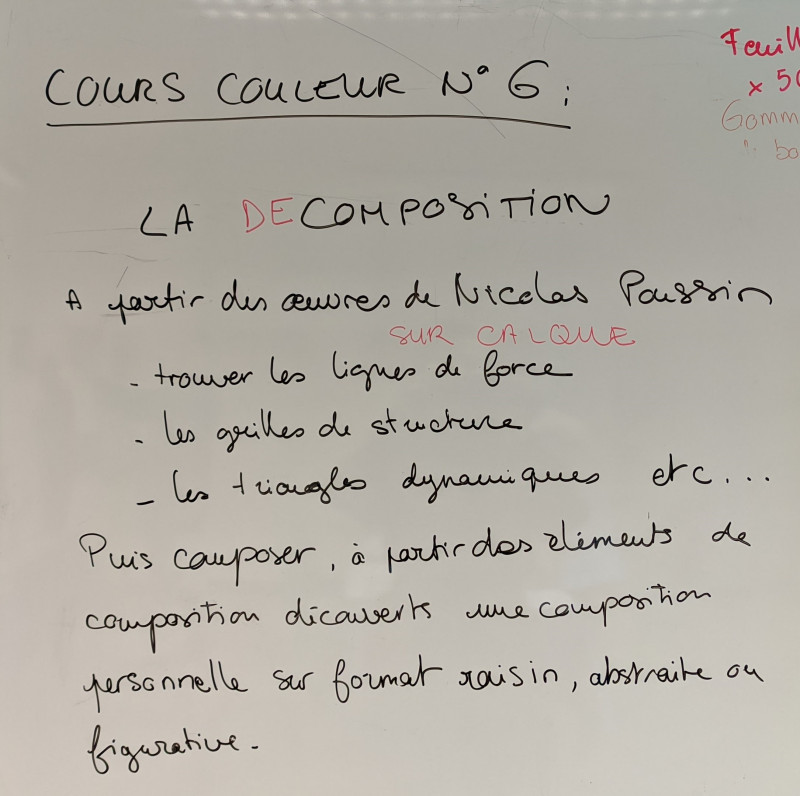 COURS COULEUR N° 6:
LA DECOMPOSITION
A partir des œuvres de Nicolas Poussin
SUR CALQUE
- trouver les lignes de force
- les grilles de structure
- les triangles dynamiques etc...
Puis composer, à partir des éléments de
composition découverts une composition
personnelle sur format raisin, abstraite ou
figurative.
Feuill
x 50
Gomm